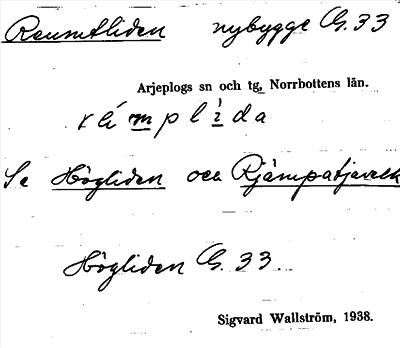 Reumtliden nybygge G. 33
Arjeplogs sn och tg, Norrbottens län.
Se Högliden och
Högliden G. 33
Sigvard Wallström, 1938.